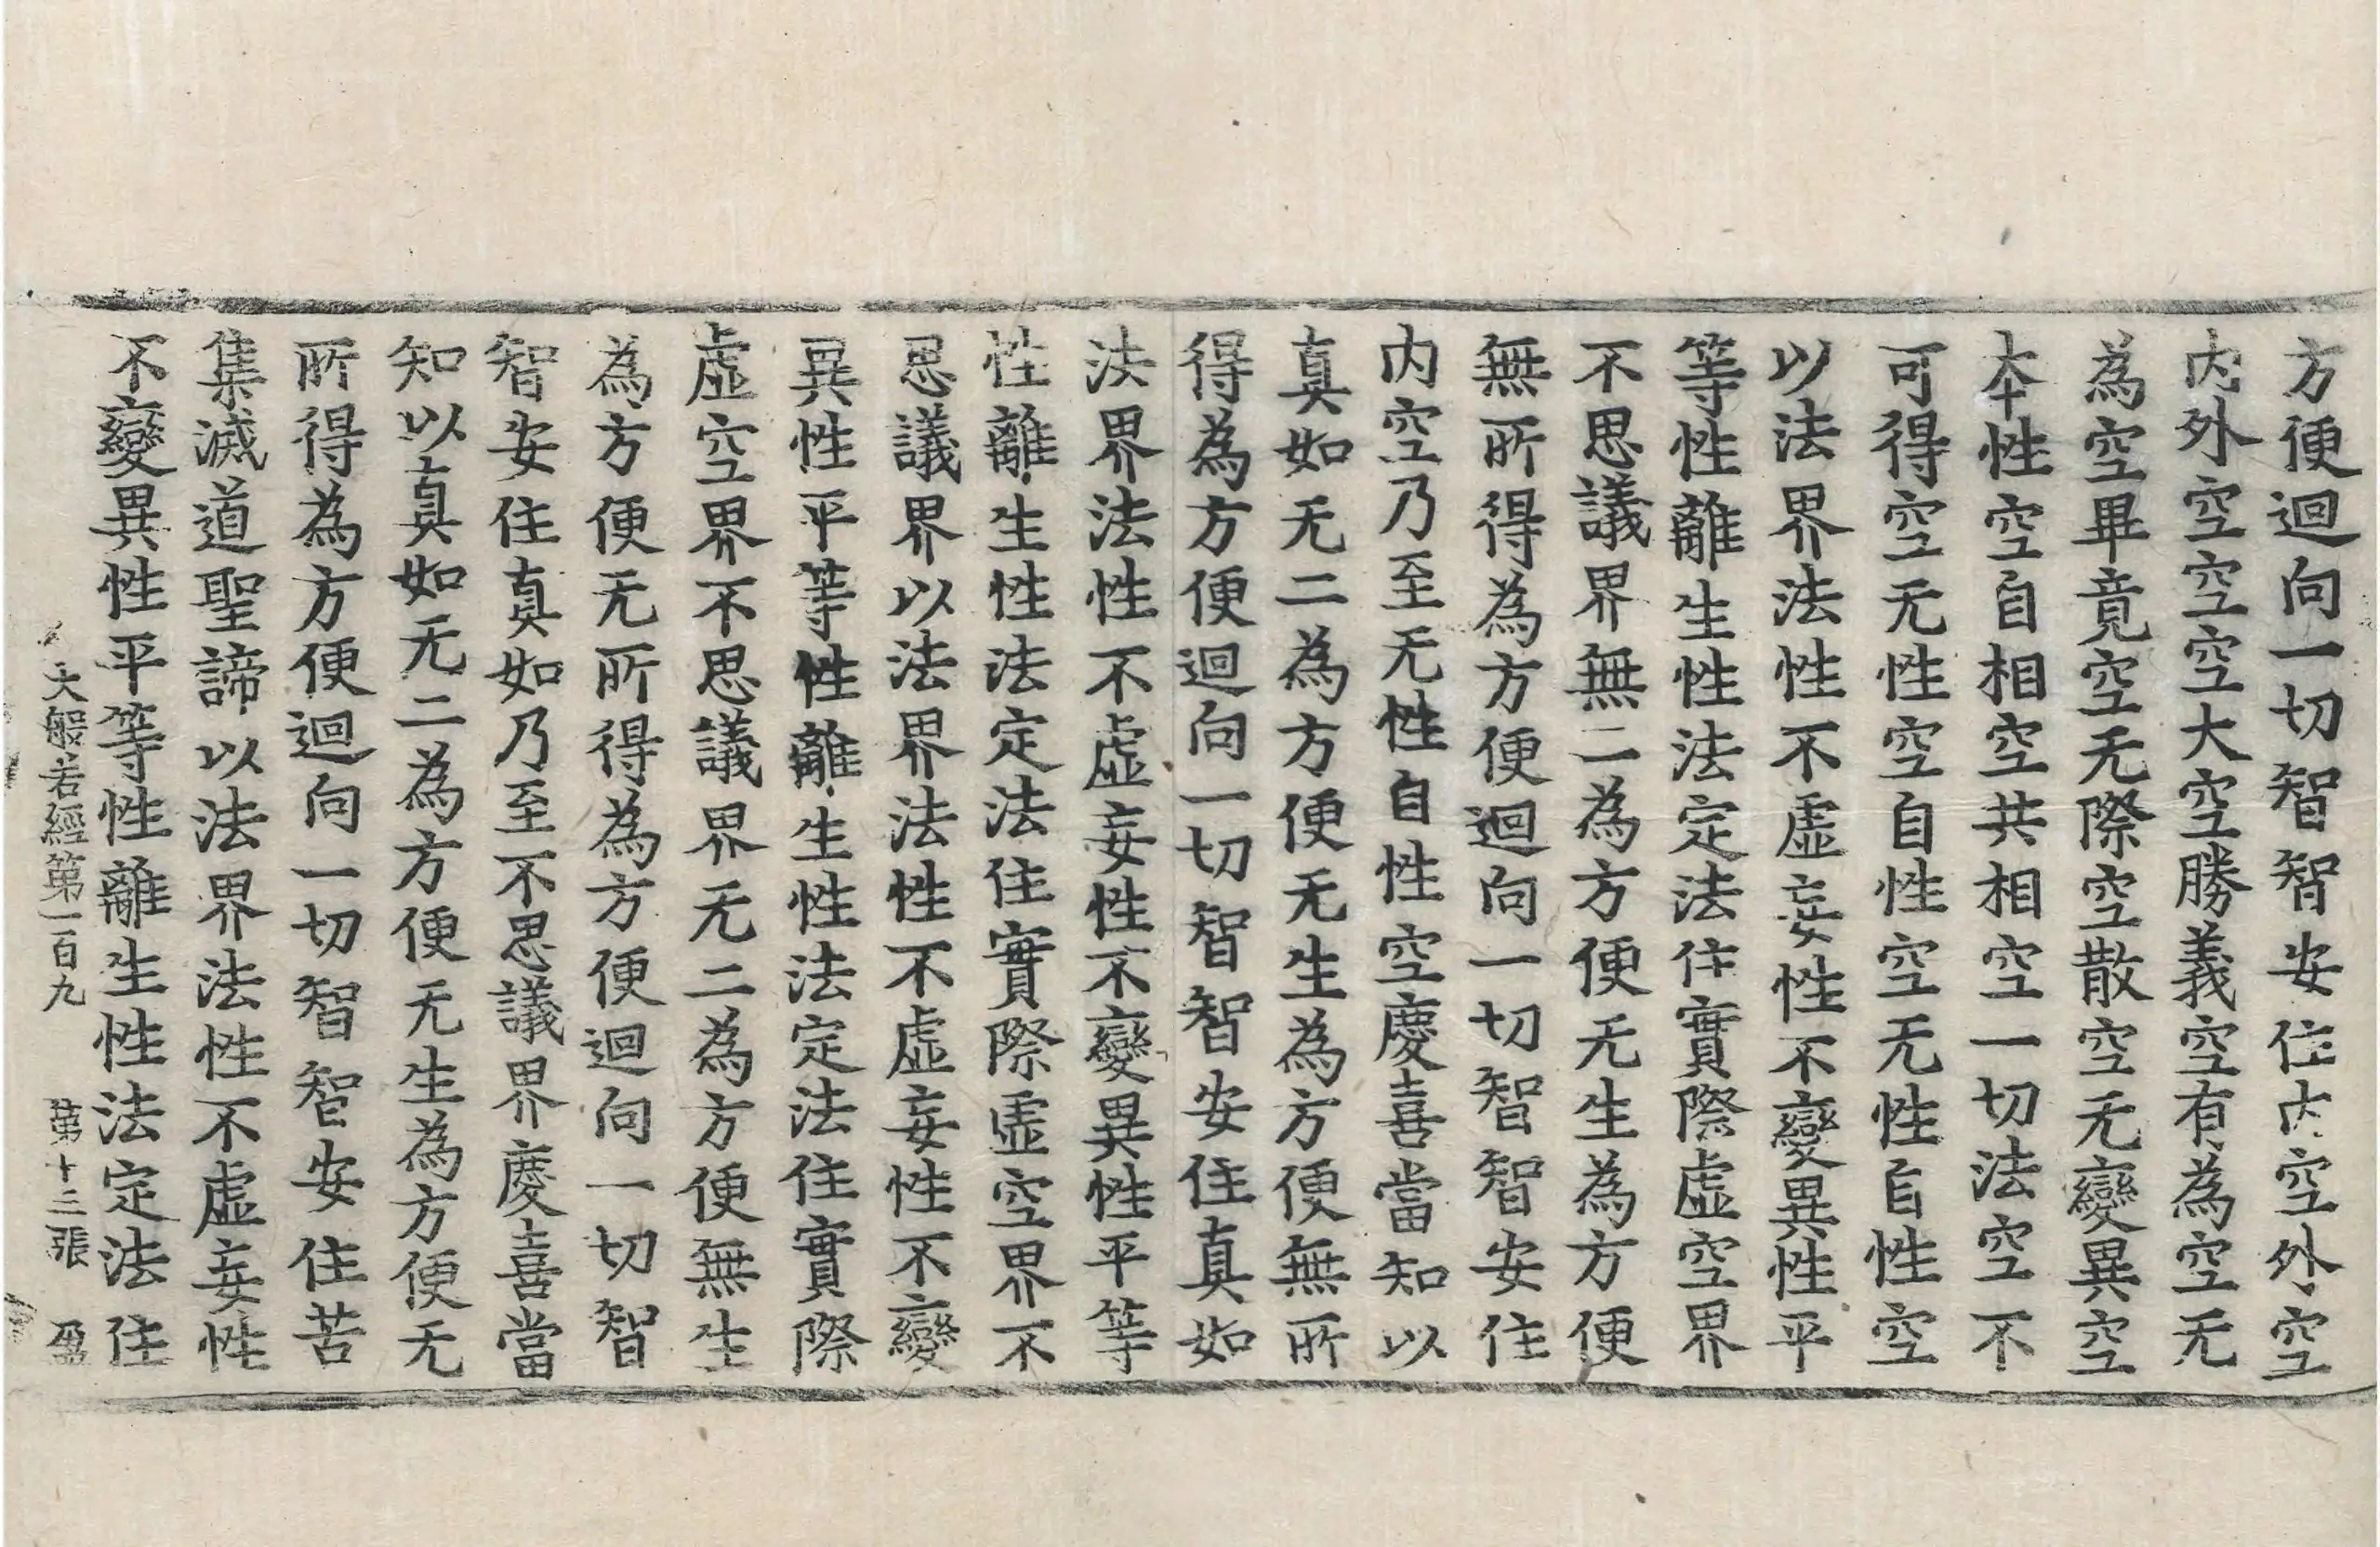 方便迴向一切智智安住内空外空
内外空空空大空勝義空有為空无
為空畢竟空无際空散空无變異空
本性空自相空共相空一切法空不
可得空无性空自性空无性自性空
以法界法性不虛妄性不變異性平
等性離生性法定法住實際虛空界
不思議界無二為方便无生為方便
無所得為方便迴向一切智智安住
内空乃至无性自性空慶喜當知以
真如无二為方便无生為方便無所
得為方便迴向一切智智安住真如
法界法性不虛妄性不變異性平等
性離生性法定法住實際虛空界不
思議界以法界法性不虛妄性不變
異性平等性離生性法定法住實際
虛空界不思議界无二為方便無生
為方便无所得為方便迴向一切智
智安住真如乃至不思議界慶喜當
知以真如无二為方便无生為方便无
所得為方便迴向一切智智安住苦
集滅道聖諦以法界法性不虛妄性
不變異性平等性離生性法定法住
大般若經第一百九 第十三張 盈